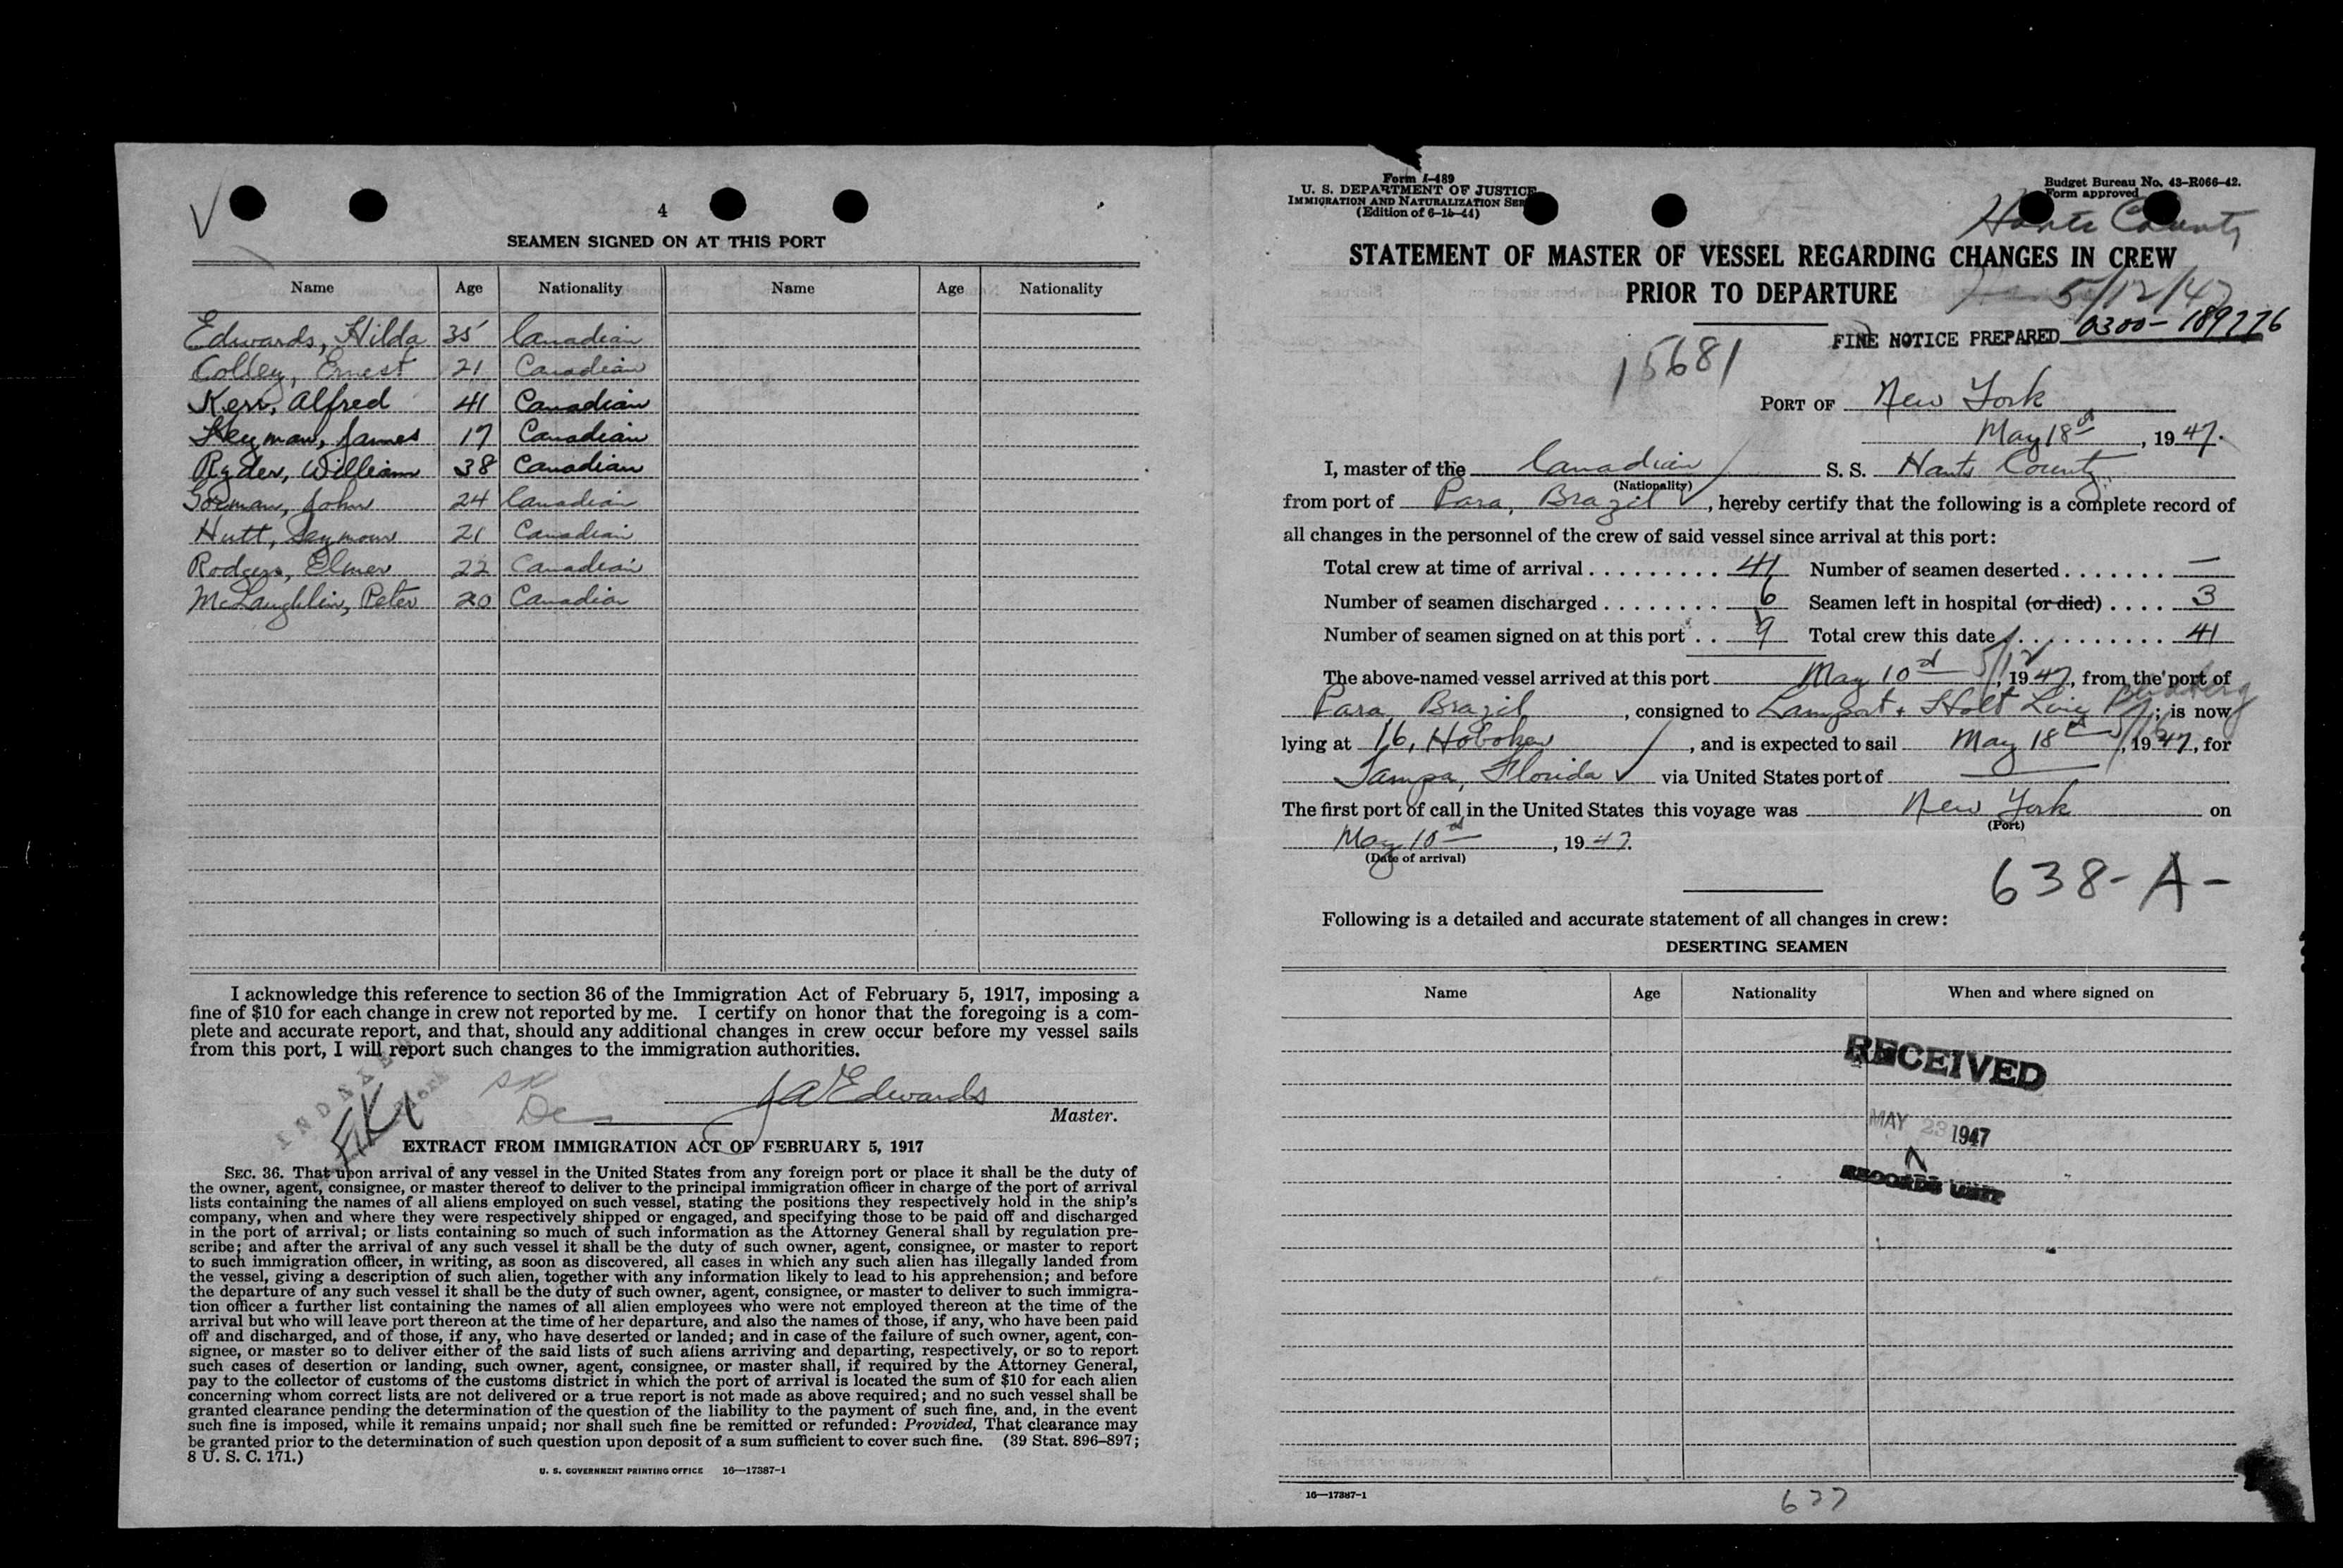 4
SEAMEN SIGNED ON AT THIS PORT
Name Age Nationality Name Age Nationality
Edwards, Hilda 35 Canadian
Colley, Ernest 21 Canadian
Kerr, Alfred 41 Canadian
James 17 Canadian
Ryder, William 38 Canadian
John 24 Canadian
Hutt, Seymour 21 Canadian
Rodgers, Elmer 22 Canadian
McLaughlin, Peter 20 Canadian
I acknowledge this reference to section 36 of the Immigration Act of February 5, 1917, imposing a
fine of $10 for each change in crew not reported by me. I certify on honor that the foregoing is a com-
plete and accurate report, and that, should any additional changes in crew occur before my vessel sails
from this port, I will report such changes to the immigration authorities.
J A Edwards
Master.
EXTRACT FROM IMMIGRATION ACT OF FEBRUARY 5, 1917
SEC. 36. That upon arrival of any vessel in the United States from any foreign port or place it shall be the duty of
the owner, agent, consignee, or master thereof to deliver to the principal immigration officer in charge of the port of arrival
lists containing the names of all aliens employed on such vessel, stating the positions they respectively hold in the ship's
company, when and where they were respectively shipped or engaged, and specifying those to be paid off and discharged
in the port of arrival; or lists containing so much of such information as the Attorney General shall by regulation pre-
scribe; and after the arrival of any such vessel it shall be the duty of such owner, agent, consignee, or master to report
to such immigration officer, in writing, as soon as discovered, all cases in which any such alien has illegally landed from
the vessel, giving a description of such alien, together with any information likely to lead to his apprehension; and before
the departure of any such vessel it shall be the duty of such owner, agent, consignee, or master to deliver to such immigra-
tion officer a further list containing the names of all alien employees who were not employed thereon at the time of the
arrival but who will leave port thereon at the time of her departure, and also the names of those, if any, who have been paid
off and discharged, and of those, if any, who have deserted or landed; and in case of the failure of such owner, agent, con-
signee, or master so to deliver either of the said lists of such aliens arriving and departing, respectively, or so to report
such cases of desertion or landing, such owner, agent, consignee, or master shall, if required by the Attorney General,
pay to the collector of customs of the customs district in which the port of arrival is located the sum of $10 for each alien
concerning whom correct lists are not delivered or a true report is not made as above required; and no such vessel shall be
granted clearance pending the determination of the question of the liability to the payment of such fine, and, in the event
such fine is imposed, while it remains unpaid; nor shall such fine be remitted or refunded: Provided, That clearance may
be granted prior to the determination of such question upon deposit of a sum sufficient to cover such fine. (39 Stat. 896–897;
8 U. S. C. 171.)
U. S. GOVERNMENT PRINTING OFFICE 16—17387-1
Form I-489
U. S. DEPARTMENT OF JUSTICE
IMMIGRATION AND NATURALIZATION SER
(Edition of 6-15-44)
Budget Bureau No. 43-R066-42.
Form approved
Hants County
STATEMENT OF MASTER OF VESSEL REGARDING CHANGES IN CREW
PRIOR TO DEPARTURE
5/12/47
FINE NOTICE PREPARED 0300-189776
15681
PORT OF New York
May 18th, 1947.
I, master of the Canadian S. S. Hants County
(Nationality)
from port of Para, Brazil, hereby certify that the following is a complete record of
all changes in the personnel of the crew of said vessel since arrival at this port:
Total crew at time of arrival . . . . . . . . . 41 Number of seamen deserted . . . . . . . —
Number of seamen discharged . . . . . . . . 6 Seamen left in hospital (or died) . . . . 3
Number of seamen signed on at this port . . 9 Total crew this date . . . . . . . . . . . 41
The above-named vessel arrived at this port May 10th 5/12, 1947, from the port of
Para, Brazil, consigned to Lamport & Holt Line; is now
lying at 16, Hoboken, and is expected to sail May 18th, 1947, for
Tampa, Florida via United States port of —
The first port of call in the United States this voyage was New York on
(Port)
May 10th, 1947.
(Date of arrival)
638-A-
Following is a detailed and accurate statement of all changes in crew:
DESERTING SEAMEN
Name Age Nationality When and where signed on
RECEIVED
MAY 23 1947
RECORDS UNIT
16—17387-1
637